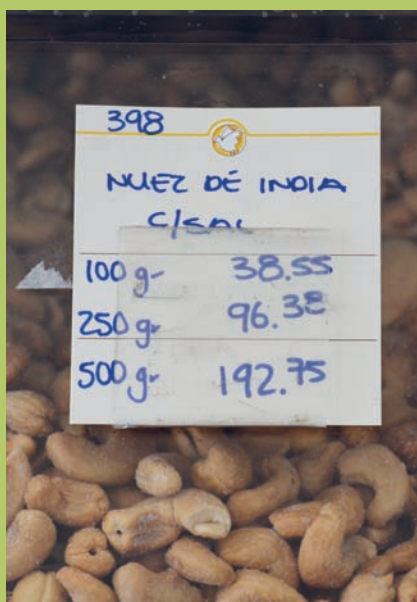 398
NUEZ DE INDIA
C/SAL
100 gr 38.55
250 gr 96.38
500 gr 192.75